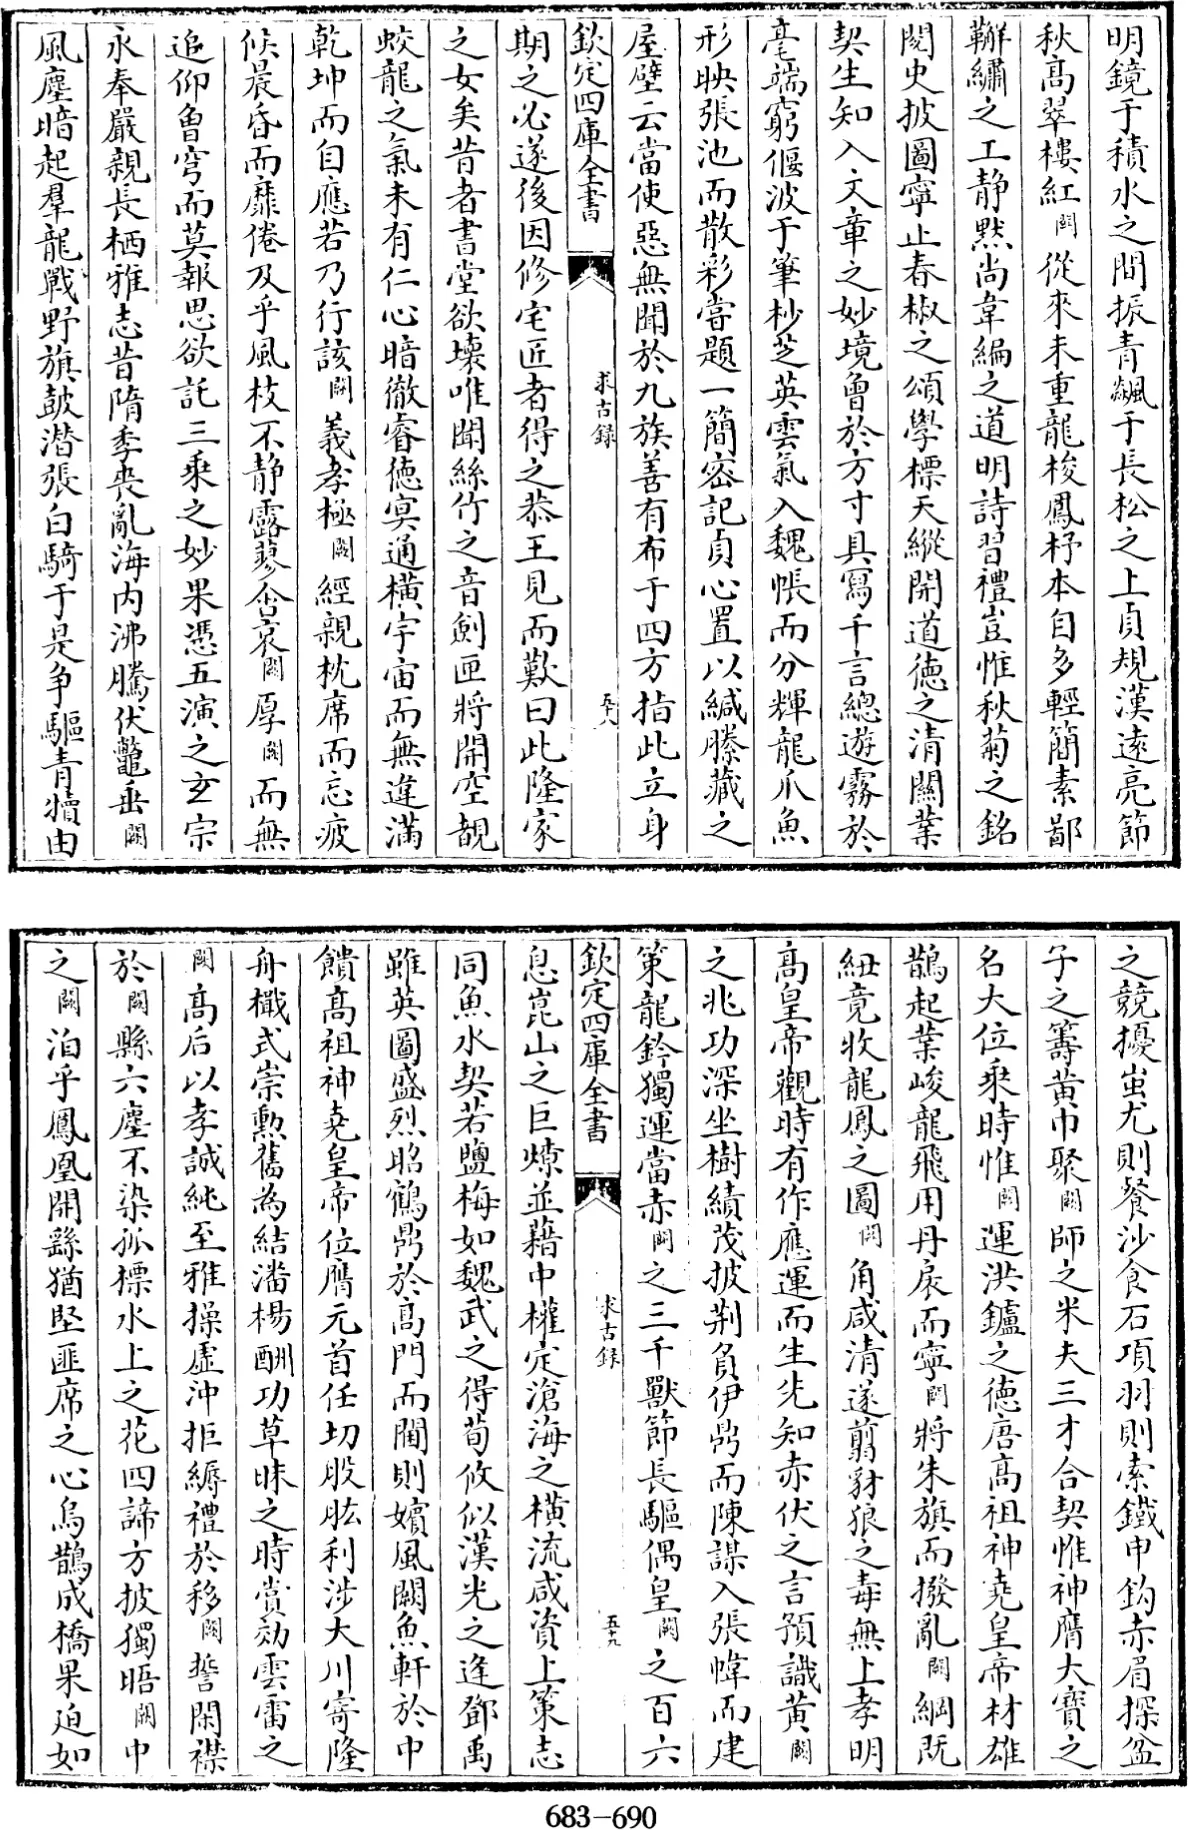 明鏡于積水之間振青飈于長松之上貞規漢遠亮節
秋高翠樓紅闕從來未重龍梭鳳杼本自多輕簡素鄙
鞶繡之工静黙尚韋編之道明詩習禮豈惟秋菊之銘
閲史披圖寧止春椒之頌學標天縱開道德之清關業
契生知入文章之妙境曾於方寸具寫千言總遊霧於
毫端窮偃波于筆杪芝英雲氣入魏帳而分輝龍爪魚
形映張池而散彩嘗題一簡密記貞心置以緘縢藏之
屋壁云當使惡無聞於九族善有布于四方指此立身
欽定四庫全書
求古録
五十八
期之必遂後因修宅匠者得之恭王見而歎曰此隆家
之女矣昔者書堂欲壊唯聞絲竹之音劍匣將開空覩
蛟龍之氣未有仁心暗徹睿徳冥通横宇宙而無違滿
乾坤而自應若乃行該闕義孝極闕經親枕席而忘疲
候晨昏而靡倦及乎風枝不静露蓼含哀闕厚闕而無
追仰魯穹而莫報思欲託三乘之妙果憑五演之玄宗
永奉嚴親長栖雅志昔隋季喪亂海内沸騰伏鼈垂闕
風塵暗起羣龍戰野旗鼓潛張白騎于是争驅青犢由
之競擾蚩尤則餐沙食石項羽則索鐵申鈎赤眉探盆
子之籌黄巾聚闕師之米夫三才合契惟神膺大寳之
名大位乘時惟闕運洪鑪之德唐高祖神堯皇帝材雄
鵲起業峻龍飛用丹扆而寧闕將朱旗而撥亂闕綱既
紐竟收龍鳳之圖闕角咸清遂翦豺狼之毒無上孝明
高皇帝觀時有作應運而生先知赤伏之言預識黄闕
之兆功深坐樹績茂披荆負伊鼎而陳謀入張幃而建
策龍鈐獨運當赤闕之三千獸節長驅偶皇闕之百六
欽定四庫全書
求古録
五十九
息崑山之巨燎並藉中權定滄海之横流咸資上策志
同魚水契若鹽梅如魏武之得荀攸似漢光之逢鄧禹
雖英圖盛烈昭鶴鼎於高門而闈則嬪風闕魚軒於中
饋高祖神堯皇帝位膺元首任切股肱利渉大川寄隆
舟檝式崇勲舊為結潘楊酬功草昧之時賞効雲雷之
闕高后以孝誠純至雅操虚沖拒縟禮於移闕誓閑襟
於闕縣六塵不染孤標水上之花四諦方披獨晤闕中
之闕洎乎鳳凰開繇猶堅匪席之心烏鵲成橋果迫如
683-690